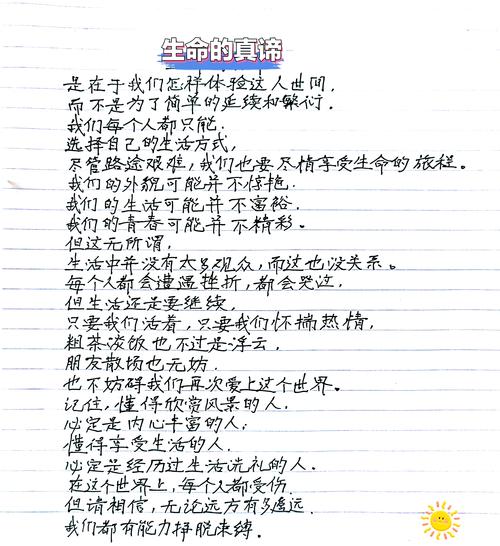 生命的真谛
是在于我们怎样体验这人世间,
而不是为了简单的延续和繁衍.
我们每个人都只能.
选择自己的生活方式,
尽管路途艰难,我们也要尽情享受生命的旅程。
我们的外貌可能并不惊艳.
我们的生活可能并不富裕.
我们的青春可能并不精彩。
但这无所谓,
生活中并没有太多观众,而这也没关系。
每个人都会遭遇挫折,都会哭泣,
但生活还是要继续,
只要我们活着,只要我们怀揣热情,
粗茶淡饭也不过是浮云.
朋友散场也无妨.
也不妨碍我们再次爱上这个世界。
记住,懂得欣赏风景的人.
必定是内心丰富的人;
懂得享受生活的人.
必定是经历过生活洗礼的人.
在这个世界上,每个人都受伤.
但请相信,无论远方有多遥远.
我们都有能力挣脱束缚.